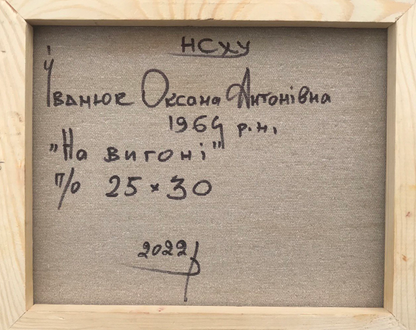 НСХУ
Іванюк Оксана Антонівна
1964 р.н.
"На вигоні"
п/о 25 × 30
2022